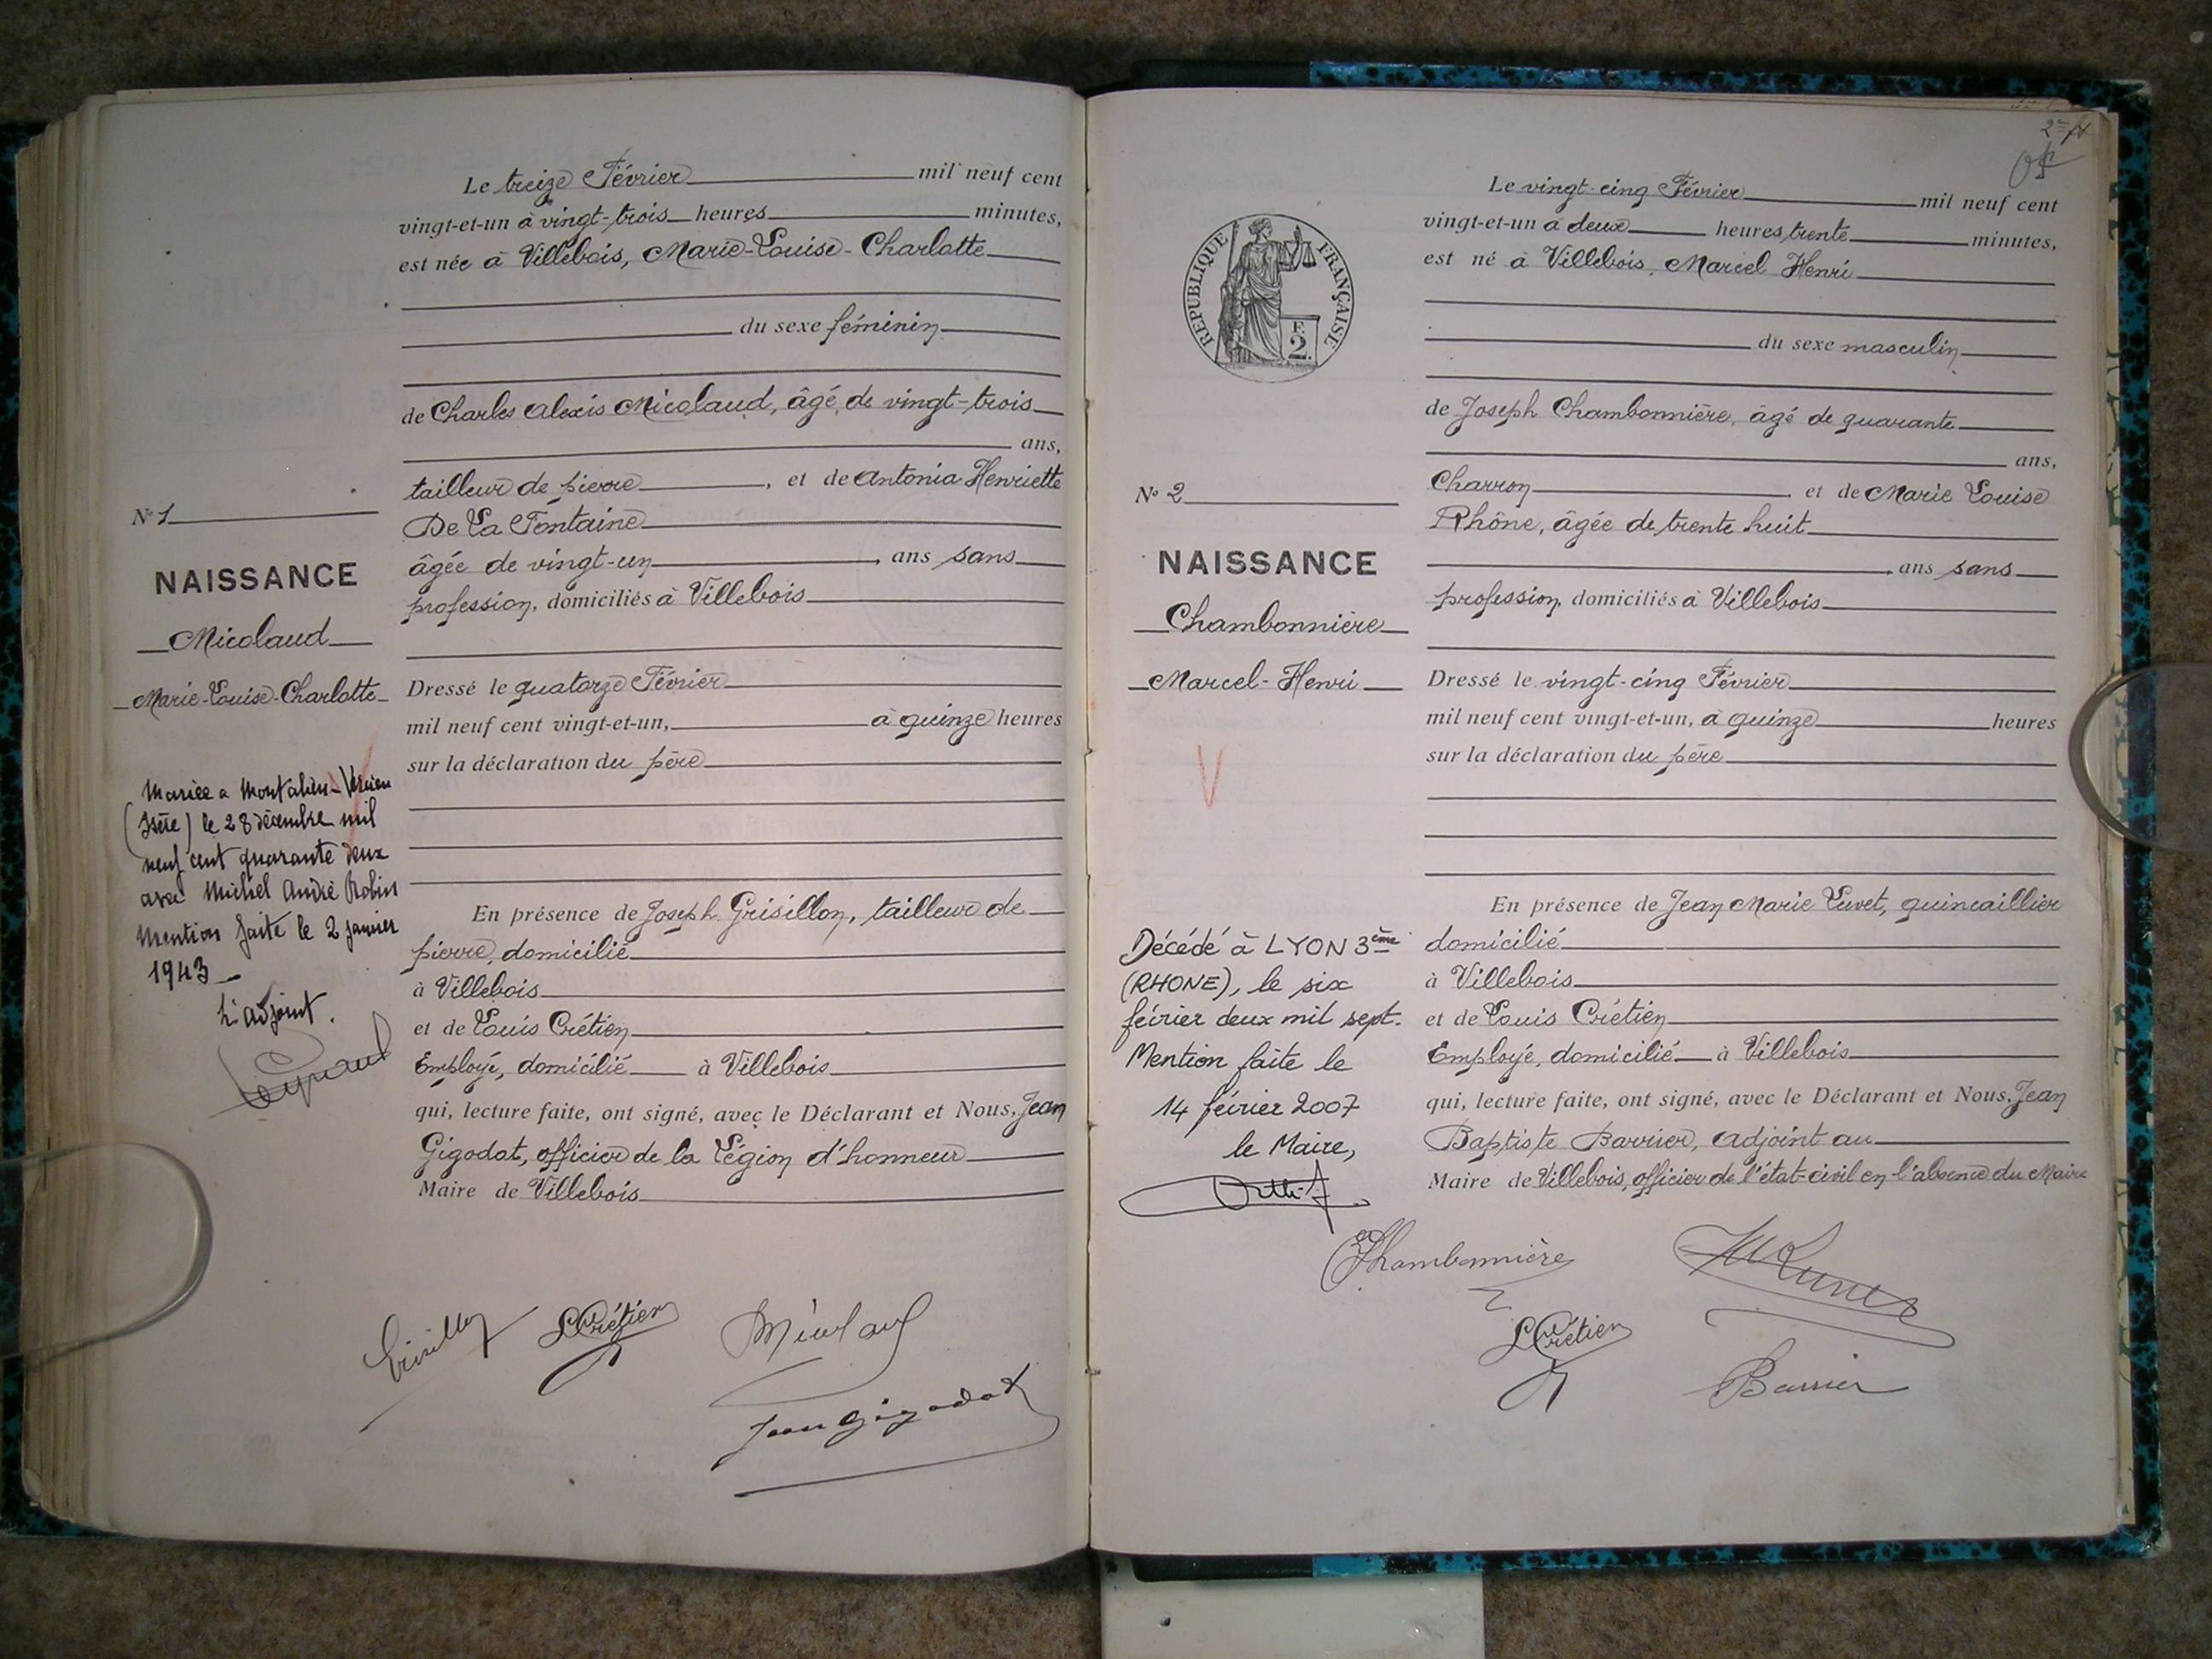 Le treize Février mil neuf cent
vingt-et-un à vingt-trois heures minutes,
est née à Villebois, Marie-Louise-Charlotte
du sexe féminin
de Charles Alexis Nicolaud, âgé de vingt-trois
ans,
tailleur de pierre, et de Antonia Henriette
De La Fontaine
âgée de vingt-un, ans sans
profession, domiciliés à Villebois
N° 1
NAISSANCE
Nicolaud
Marie-Louise-Charlotte
Dressé le quatorze Février
mil neuf cent vingt-et-un, à quinze heures
sur la déclaration du père
Mariée a Montalieu-Vercieu
(Isère) le 28 décembre mil
neuf cent quarante deux
avec Michel André Robin
Mention faite le 2 janvier
1943
L'adjoint.
En présence de Joseph Grisillon, tailleur de
pierre, domicilié
à Villebois
et de Louis Crétien
Employé, domicilié à Villebois
qui, lecture faite, ont signé, avec le Déclarant et Nous, Jean
Gigodot, officier de la Légion d'honneur
Maire de Villebois
LCrétien
Jean Gigodot
2
Le vingt-cinq Février mil neuf cent
vingt-et-un à deux heures trente minutes,
est né à Villebois, Marcel Henri
REPUBLIQUE FRANÇAISE
F.
2.
du sexe masculin
de Joseph Chambonnière, âgé de quarante
ans,
Charron et de Marie Louise
Rhône, âgée de trente huit
ans sans
profession, domiciliés à Villebois
N° 2
NAISSANCE
Chambonnière
Marcel-Henri
Dressé le vingt-cinq Février
mil neuf cent vingt-et-un, à quinze heures
sur la déclaration du père
V
En présence de Jean Marie Luvet, quincaillier
domicilié
à Villebois
et de Louis Crétien
Employé, domicilié à Villebois
qui, lecture faite, ont signé, avec le Déclarant et Nous, Jean
Baptiste Barrier, adjoint au
Maire de Villebois, officier de l'état-civil en l'absence du Maire
Décédé à LYON 3ème
(RHONE), le six
février deux mil sept.
Mention faite le
14 février 2007
le Maire,
Chambonnière
LCrétien
Barrier